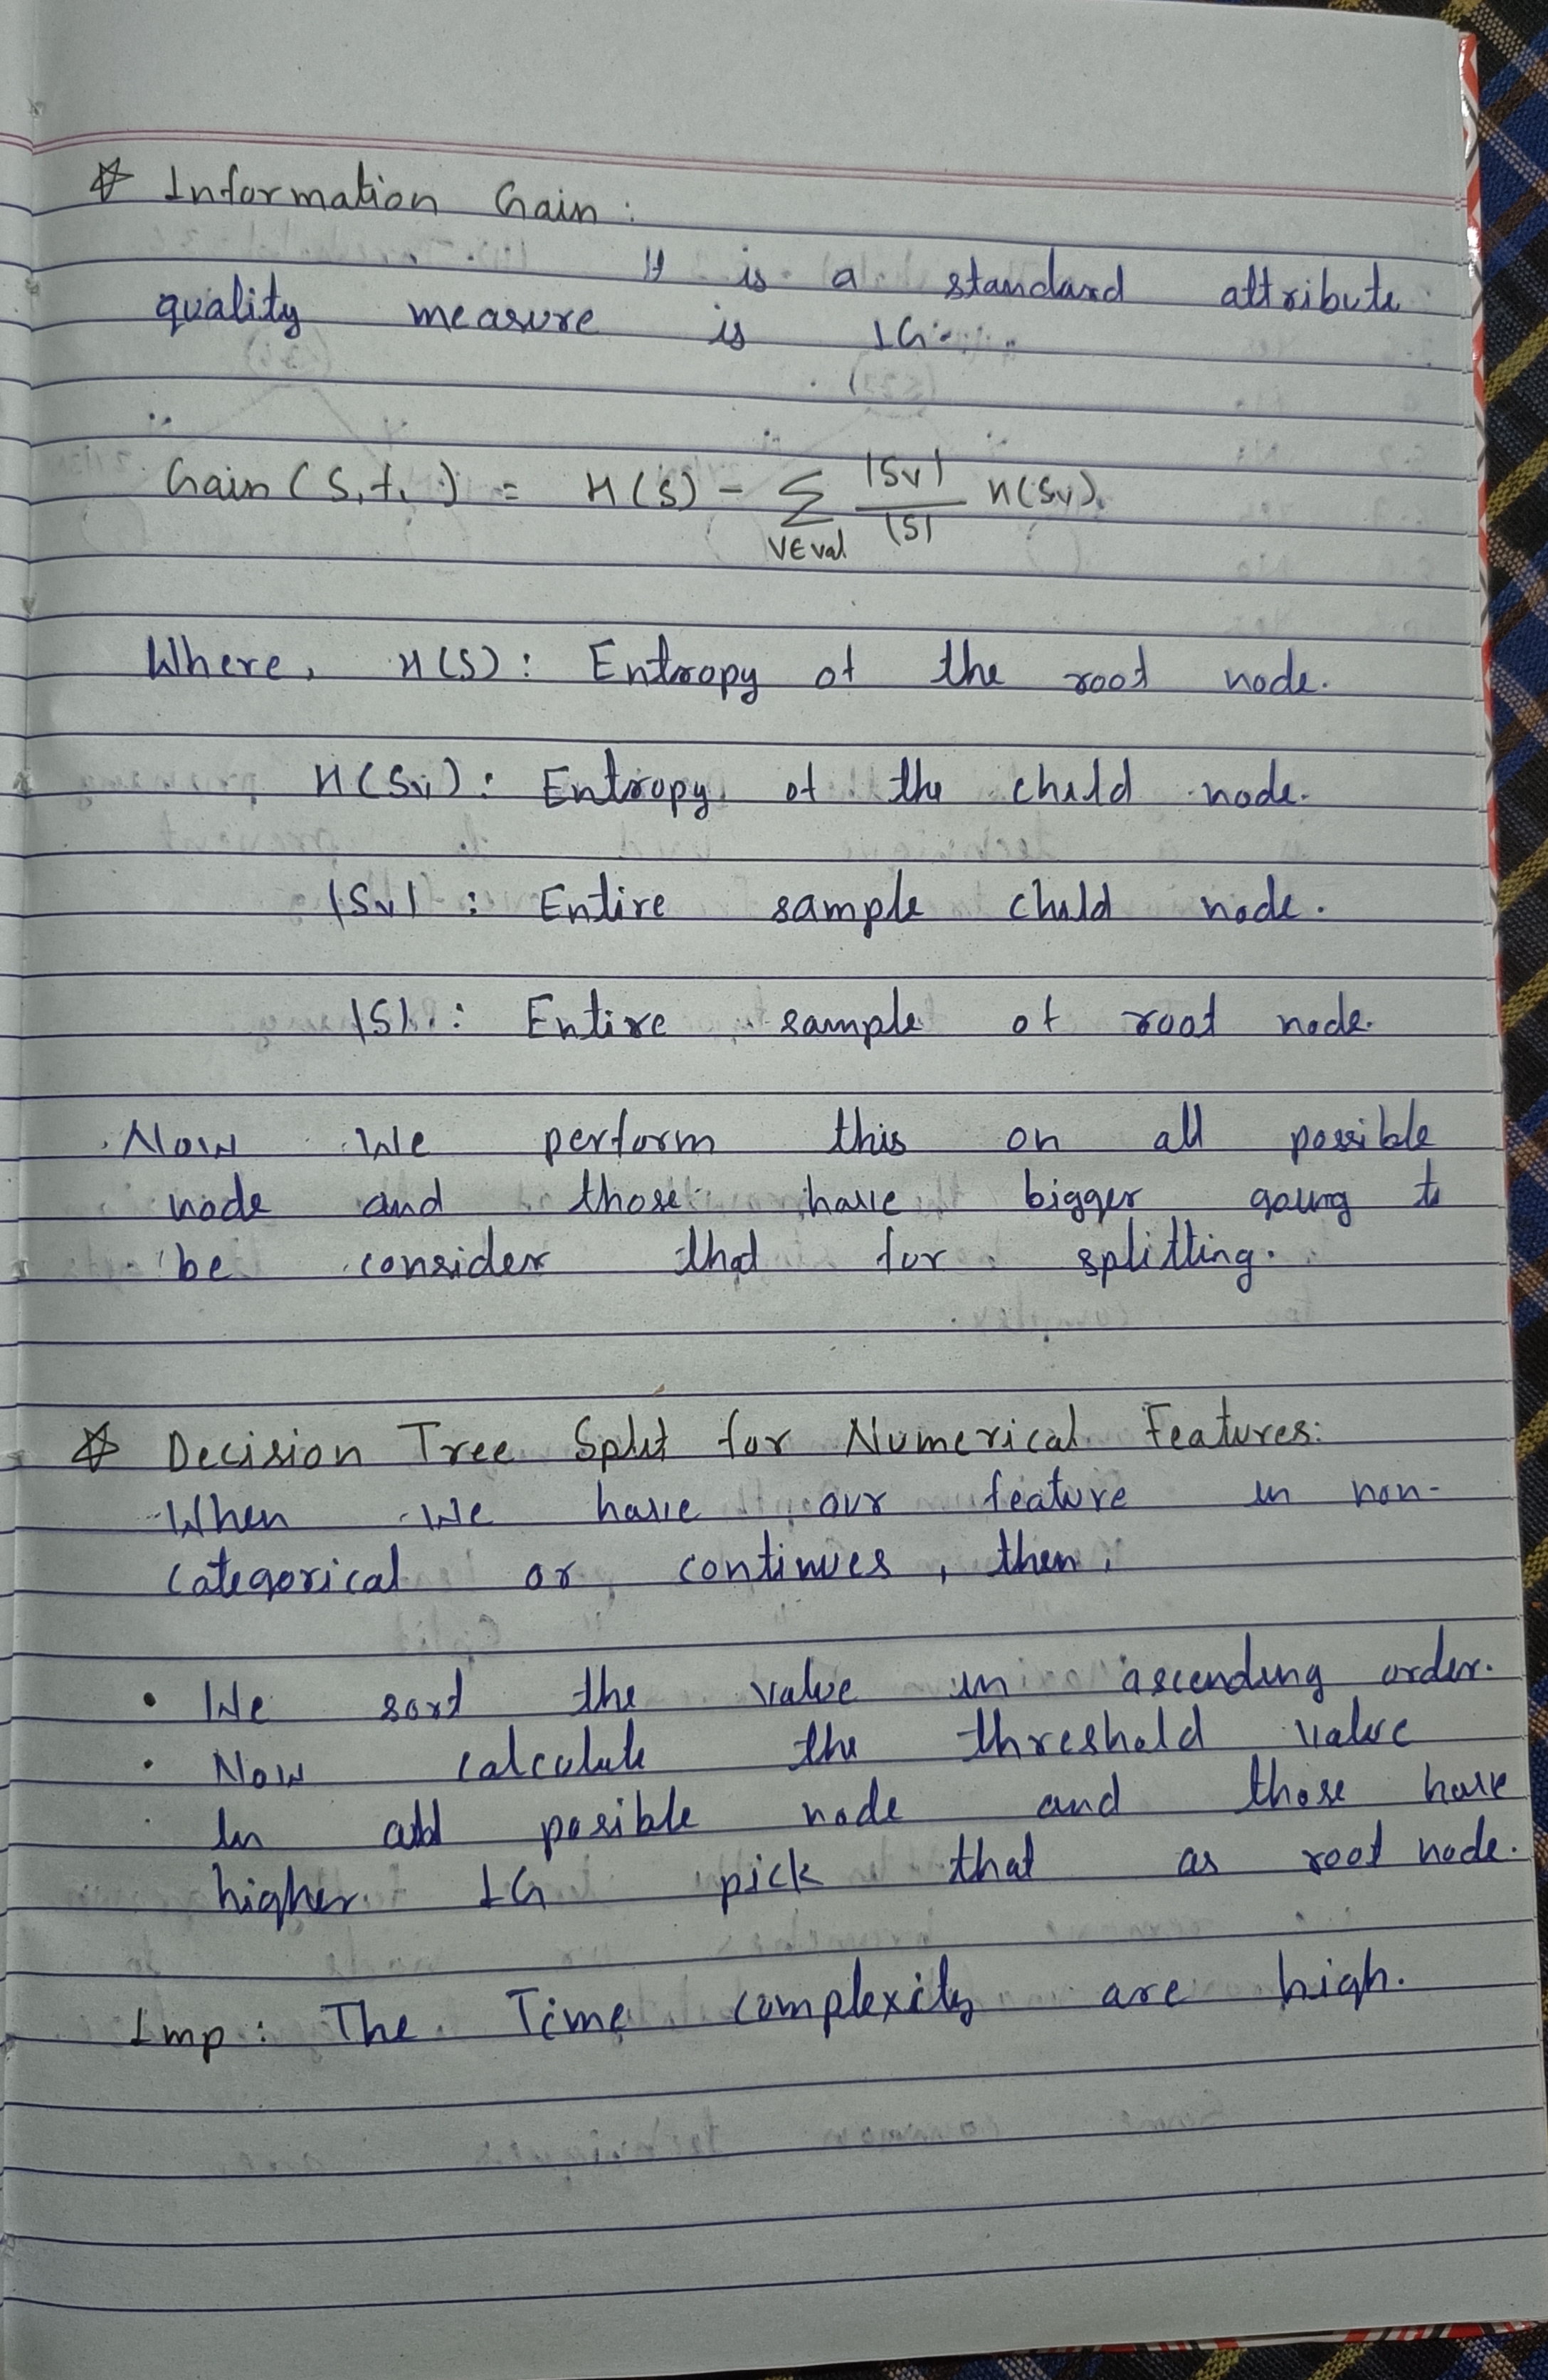 ☆ Information Gain :
It is a standard attribute
quality measure is IG.
Gain (S, f1) = H(S) - ∑ |Sv| / |S| H(Sv).
v∈val
Where, H(S) : Entropy of the root node.
H(Sv) : Entropy of the child node.
|Sv| : Entire sample child node.
|S| : Entire sample of root node.
Now we perform this on all possible
node and those have bigger going to
be consider that for splitting.
☆ Decision Tree Split for Numerical Features:
When we have our feature in non-
categorical or continues, then,
• We sort the value in ascending order.
• Now calculate the threshold value
In all posible node and those have
higher IG pick that as root node.
Imp : The Time complexity are high.